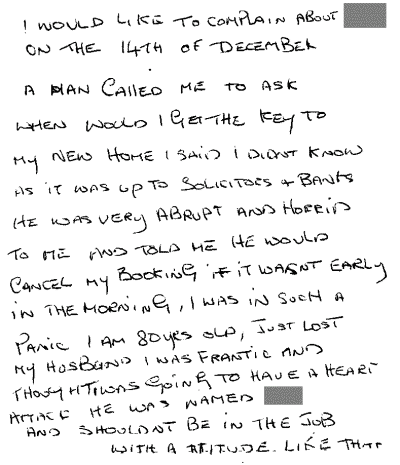 I WOULD LIKE TO COMPLAIN ABOUT
ON THE 14TH OF DECEMBER
A MAN CALLED ME TO ASK
WHEN WOULD I GET THE KEY TO
MY NEW HOME I SAID I DIDNT KNOW
AS IT WAS UP TO SOLICITORS + BANKS
HE WAS VERY ABRUPT AND HORRID
TO ME AND TOLD ME HE WOULD
CANCEL MY BOOKING IF IT WASNT EARLY
IN THE MORNING, I WAS IN SUCH A
PANIC I AM 80 YRS OLD, JUST LOST
MY HUSBAND I WAS FRANTIC AND
THOUGHT I WAS GOING TO HAVE A HEART
ATTACK HE WAS NAMED
AND SHOULDNT BE IN THE JOB
WITH A ATTITUDE. LIKE THAT